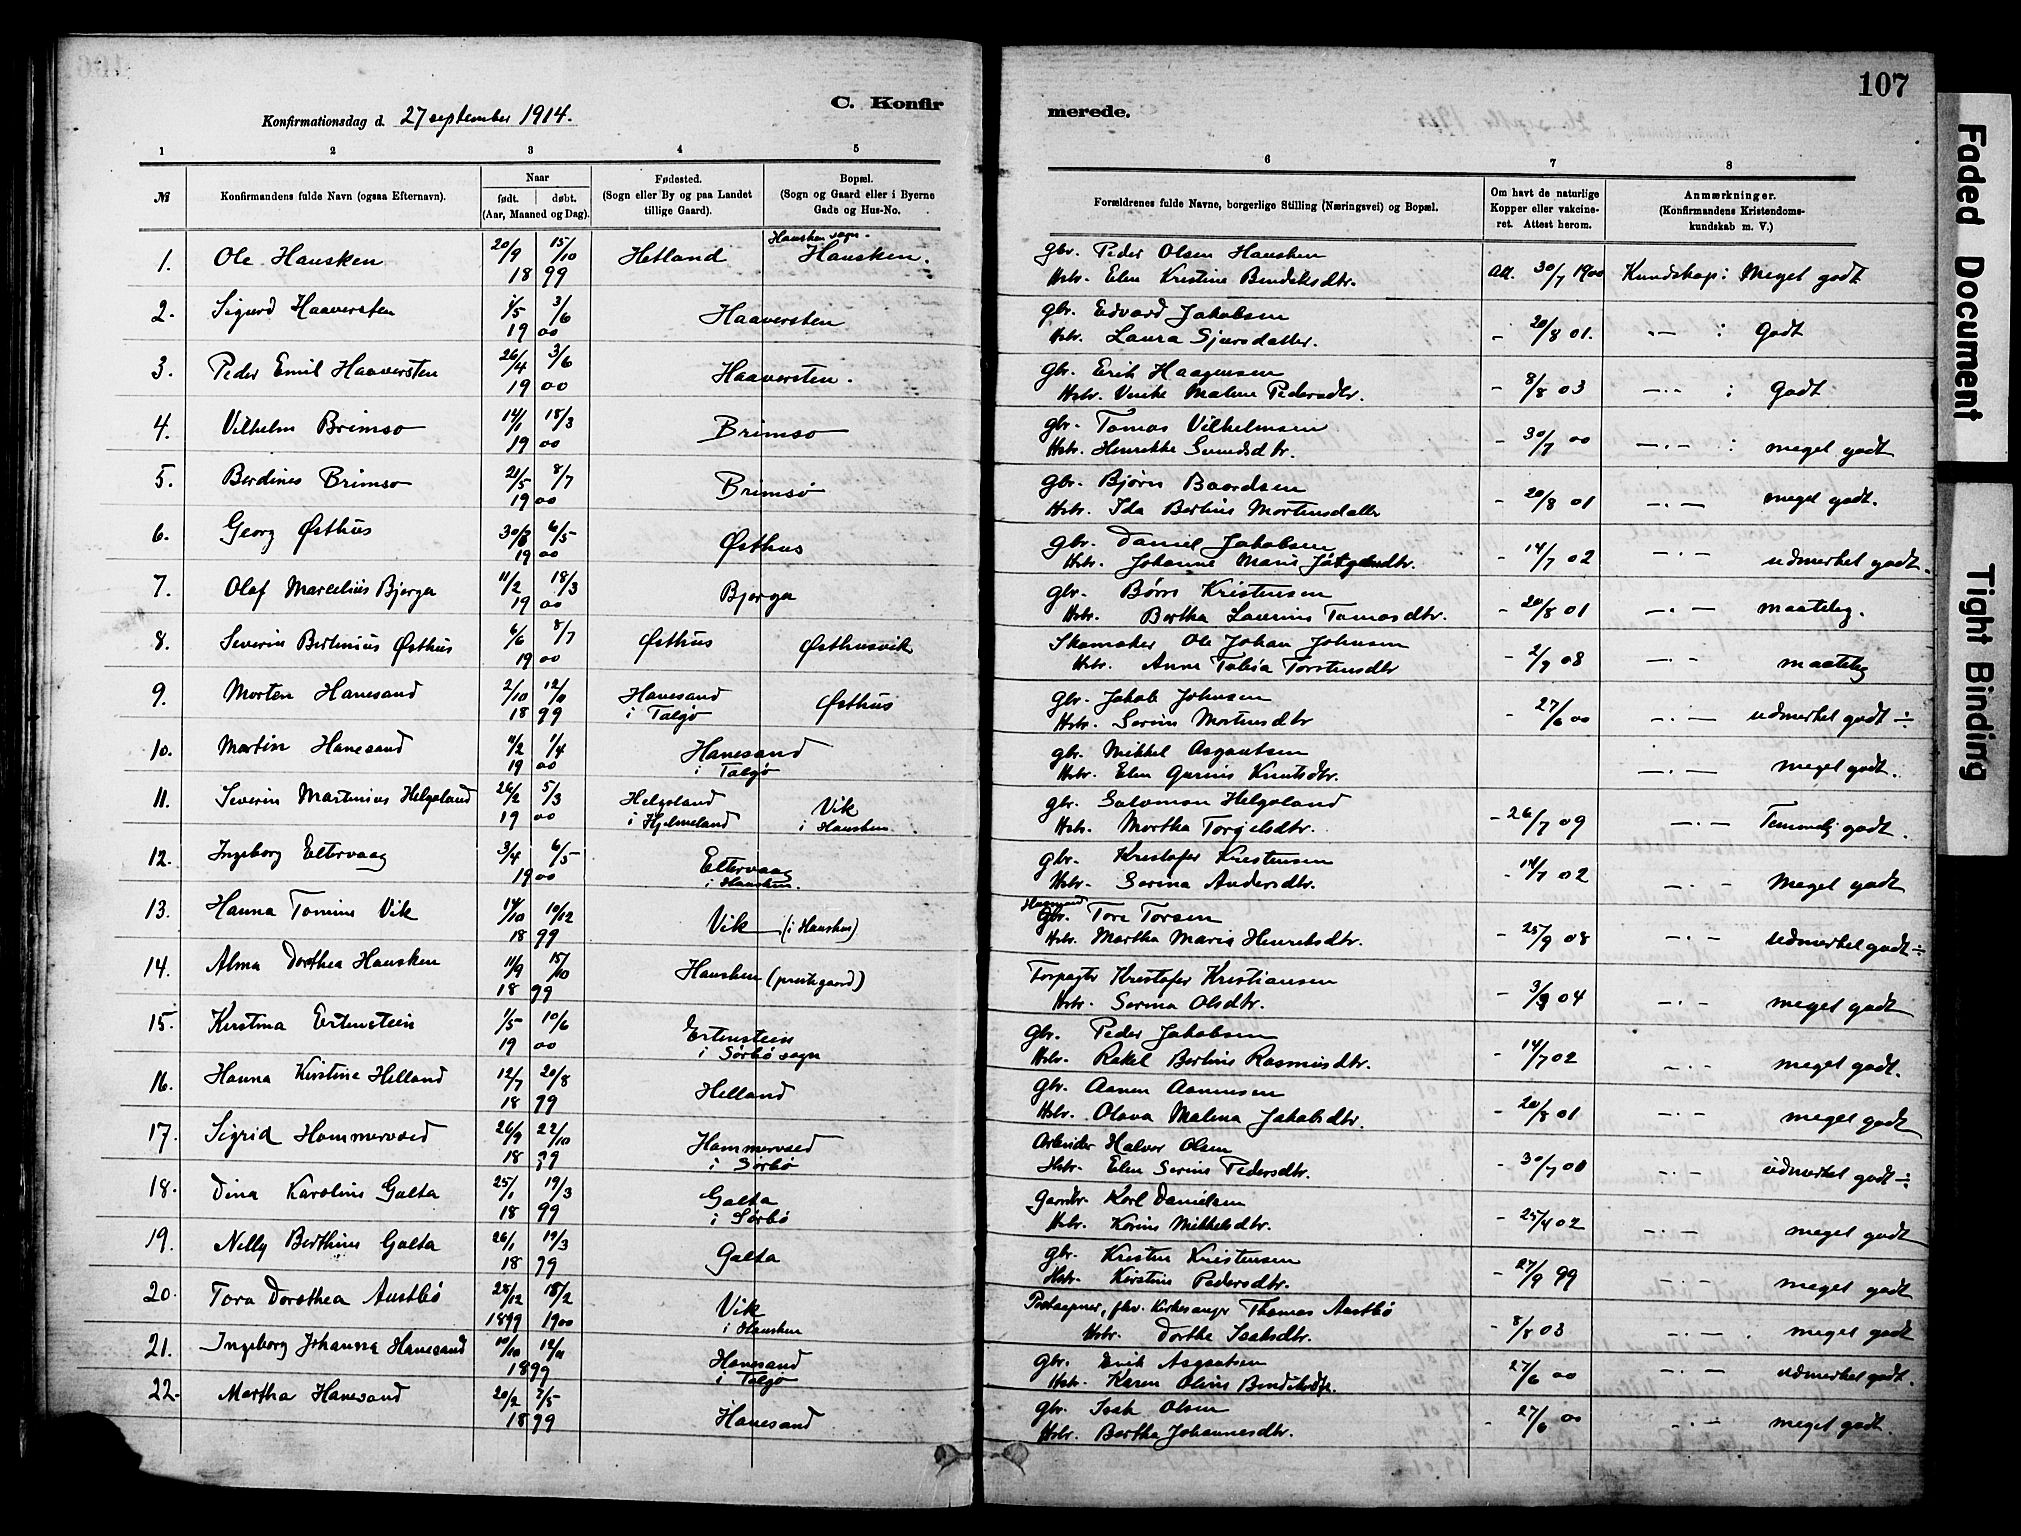 107
C. Konfirmerede.
Konfirmationsdag d. 27 september 1914.
1 2 3 4 5 6 7 8
№ Konfirmandens fulde Navn (ogsaa Efternavn). Naar født. døbt. (Aar, Maaned og Dag). Fødested. (Sogn eller By og paa Landet tillige Gaard). Bopæl. (Sogn og Gaard eller i Byerne Gade og Hus-No. Forældrenes fulde Navne, borgerlige Stilling (Næringsvei) og Bopæl. Om havt de naturlige Kopper eller vakcineret. Attest herom. Anmærkninger. (Konfirmandens Kristendomskundskab m. V.)
1. Ole Hausken 20/9 15/10 1899 Hetland Hausken sogn. Hausken. gbr. Peder Olsen Hausken Att. 30/7 1900 Kundskap: Meget godt
Hstr. Elen Kristine Bendiksdtr.
2. Sigurd Haaversten 1/5 3/6 1900 Haaversten gbr. Edvard Jakobsen - 20/8 01. -"- : Godt
Hstr. Laura Sjursdatter.
3. Peder Emil Haaversten 26/4 3/6 1900 Haaversten. gbr. Erik Haagensen - 8/8 03 -"- : Godt
Hstr. Malene Pedersdtr.
4. Vilhelm Brimsø 14/1 18/3 1900 Brimsø gbr. Tomas Vilhelmsen - 30/7 00 -"- : meget godt
Hstr. Henrikke
5. Berdines Brimsø 21/5 8/7 1900 Brimsø gbr. Bjørn Baardsen - 20/8 01 -"- meget godt.
Hstr. Ida Bertine Mortensdatter
6. Georg Østhus 6/5 1900 Østhus gbr. Daniel Jakobsen - 14/7 02 -"- udmerket godt.
Hstr. Johanne Marie
7. Olaf Marcelius Bjerga 11/2 18/3 1900 Bjerga gbr. Børre Kristensen - 20/8 01 -"- maatelig.
Hstr. Bertha Laurine Tomasdtr.
8. Severin Bertinius Østhus 6/6 8/7 1900 Østhus Østhusvik Skomaker Ole Johan Johnsen - 2/9 08 -"- maatelig
Hstr. Anne Tobia Torstensdtr
9. Morten Hanesand 2/10 12/11 1899 Hanesand i Talgø Østhus gbr. Jakob Johnsen - 27/6 00 -"- udmerket godt ÷
Hstr. Serine Mortensdtr
10. Martin Hanesand 11/2 1/4 1900 Hanesand i Talgø gbr. Mikkel Asgautsen -"- meget godt.
Hstr. Elen Gurine Knutsdtr.
11. Severin Martinius Helgeland 26/2 5/3 1900 Helgeland i Hjelmeland Vik i Hausken gbr. Salomon Helgeland - 26/7 09 -"- Temmelig godt.
Hstr. Martha Torgelsdtr.
12. Ingeborg Eltervaag 3/4 6/5 1900 Eltervaag i Hausken. gbr. Kristofer Kristensen - 14/7 02 -"- Meget godt
Hstr. Serina Andersdtr.
13. Hanna Tomine Vik 14/10 10/12 1899 Vik (i Hausken) Husmand Gbr. Tore Torsen - 25/9 08 -"- udmerket godt ÷
Hstr. Martha Maria Henriksdtr.
14. Alma Dorthea Hausken 11/9 15/10 1899 Hausken (prestegaard) Forpagter Kristofer Kristiansen - 04 -"- meget godt
Hstr. Serina Olsdtr.
15. Kirstina Ertenstein 1/5 10/6 1900 Ertenstein i Sørbø sogn gbr. Peder Jakobsen - 14/7 02 -"- meget godt.
Hstr. Rakel Bertine Rasmusdtr.
16. Hanna Kirstine Helland 12/7 20/8 1899 Helland gbr. Aanen Aanensen - 20/8 01 -"- meget godt
Hstr. Olava Malena Jakobsdtr.
17. Sigrid Hammervold 26/9 22/10 1899 i Sørbø Arbeider Halvor Olsen - 30/7 00 -"- udmerket godt ÷
Hstr. Elen Serine Pedersdtr.
18. Dina Karoline Galta 25/1 19/3 1899 Galta i Sørbø Gaardbr. Karl Danielsen - 25/4 02 -"- meget godt
Hstr. Karine Mikkelsdtr.
19. Nelly Berthine Galta 26/1 19/3 1899 Galta gbr. Kristen Kristensen - 27/9 99 -"- meget godt
Hstr. Kirstine Pedersdtr.
20. Tora Dorothea Austbø 28/12 18/2 1899 1900 Vik i Hausken Postaapner, fhv. Kirkesanger Thomas Austbø - 8/8 03 -"- meget godt
Hstr. Dorthe Isaksdtr.
21. Ingeborg Johanna Hanesand 10/10 12/11 1899 Hanesand i Talgø gbr. Erik Asgautsen - 27/6 00 -"- udmerket godt.
Hstr. Karen Oline Bendiksdtr.
22. Martha Hanesand 20/2 7/5 1899 Hanesand gbr. Isak Olsen - 27/6 00 -"- meget godt.
Hstr. Bertha Johannesdtr.
Faded Document
Tight Binding